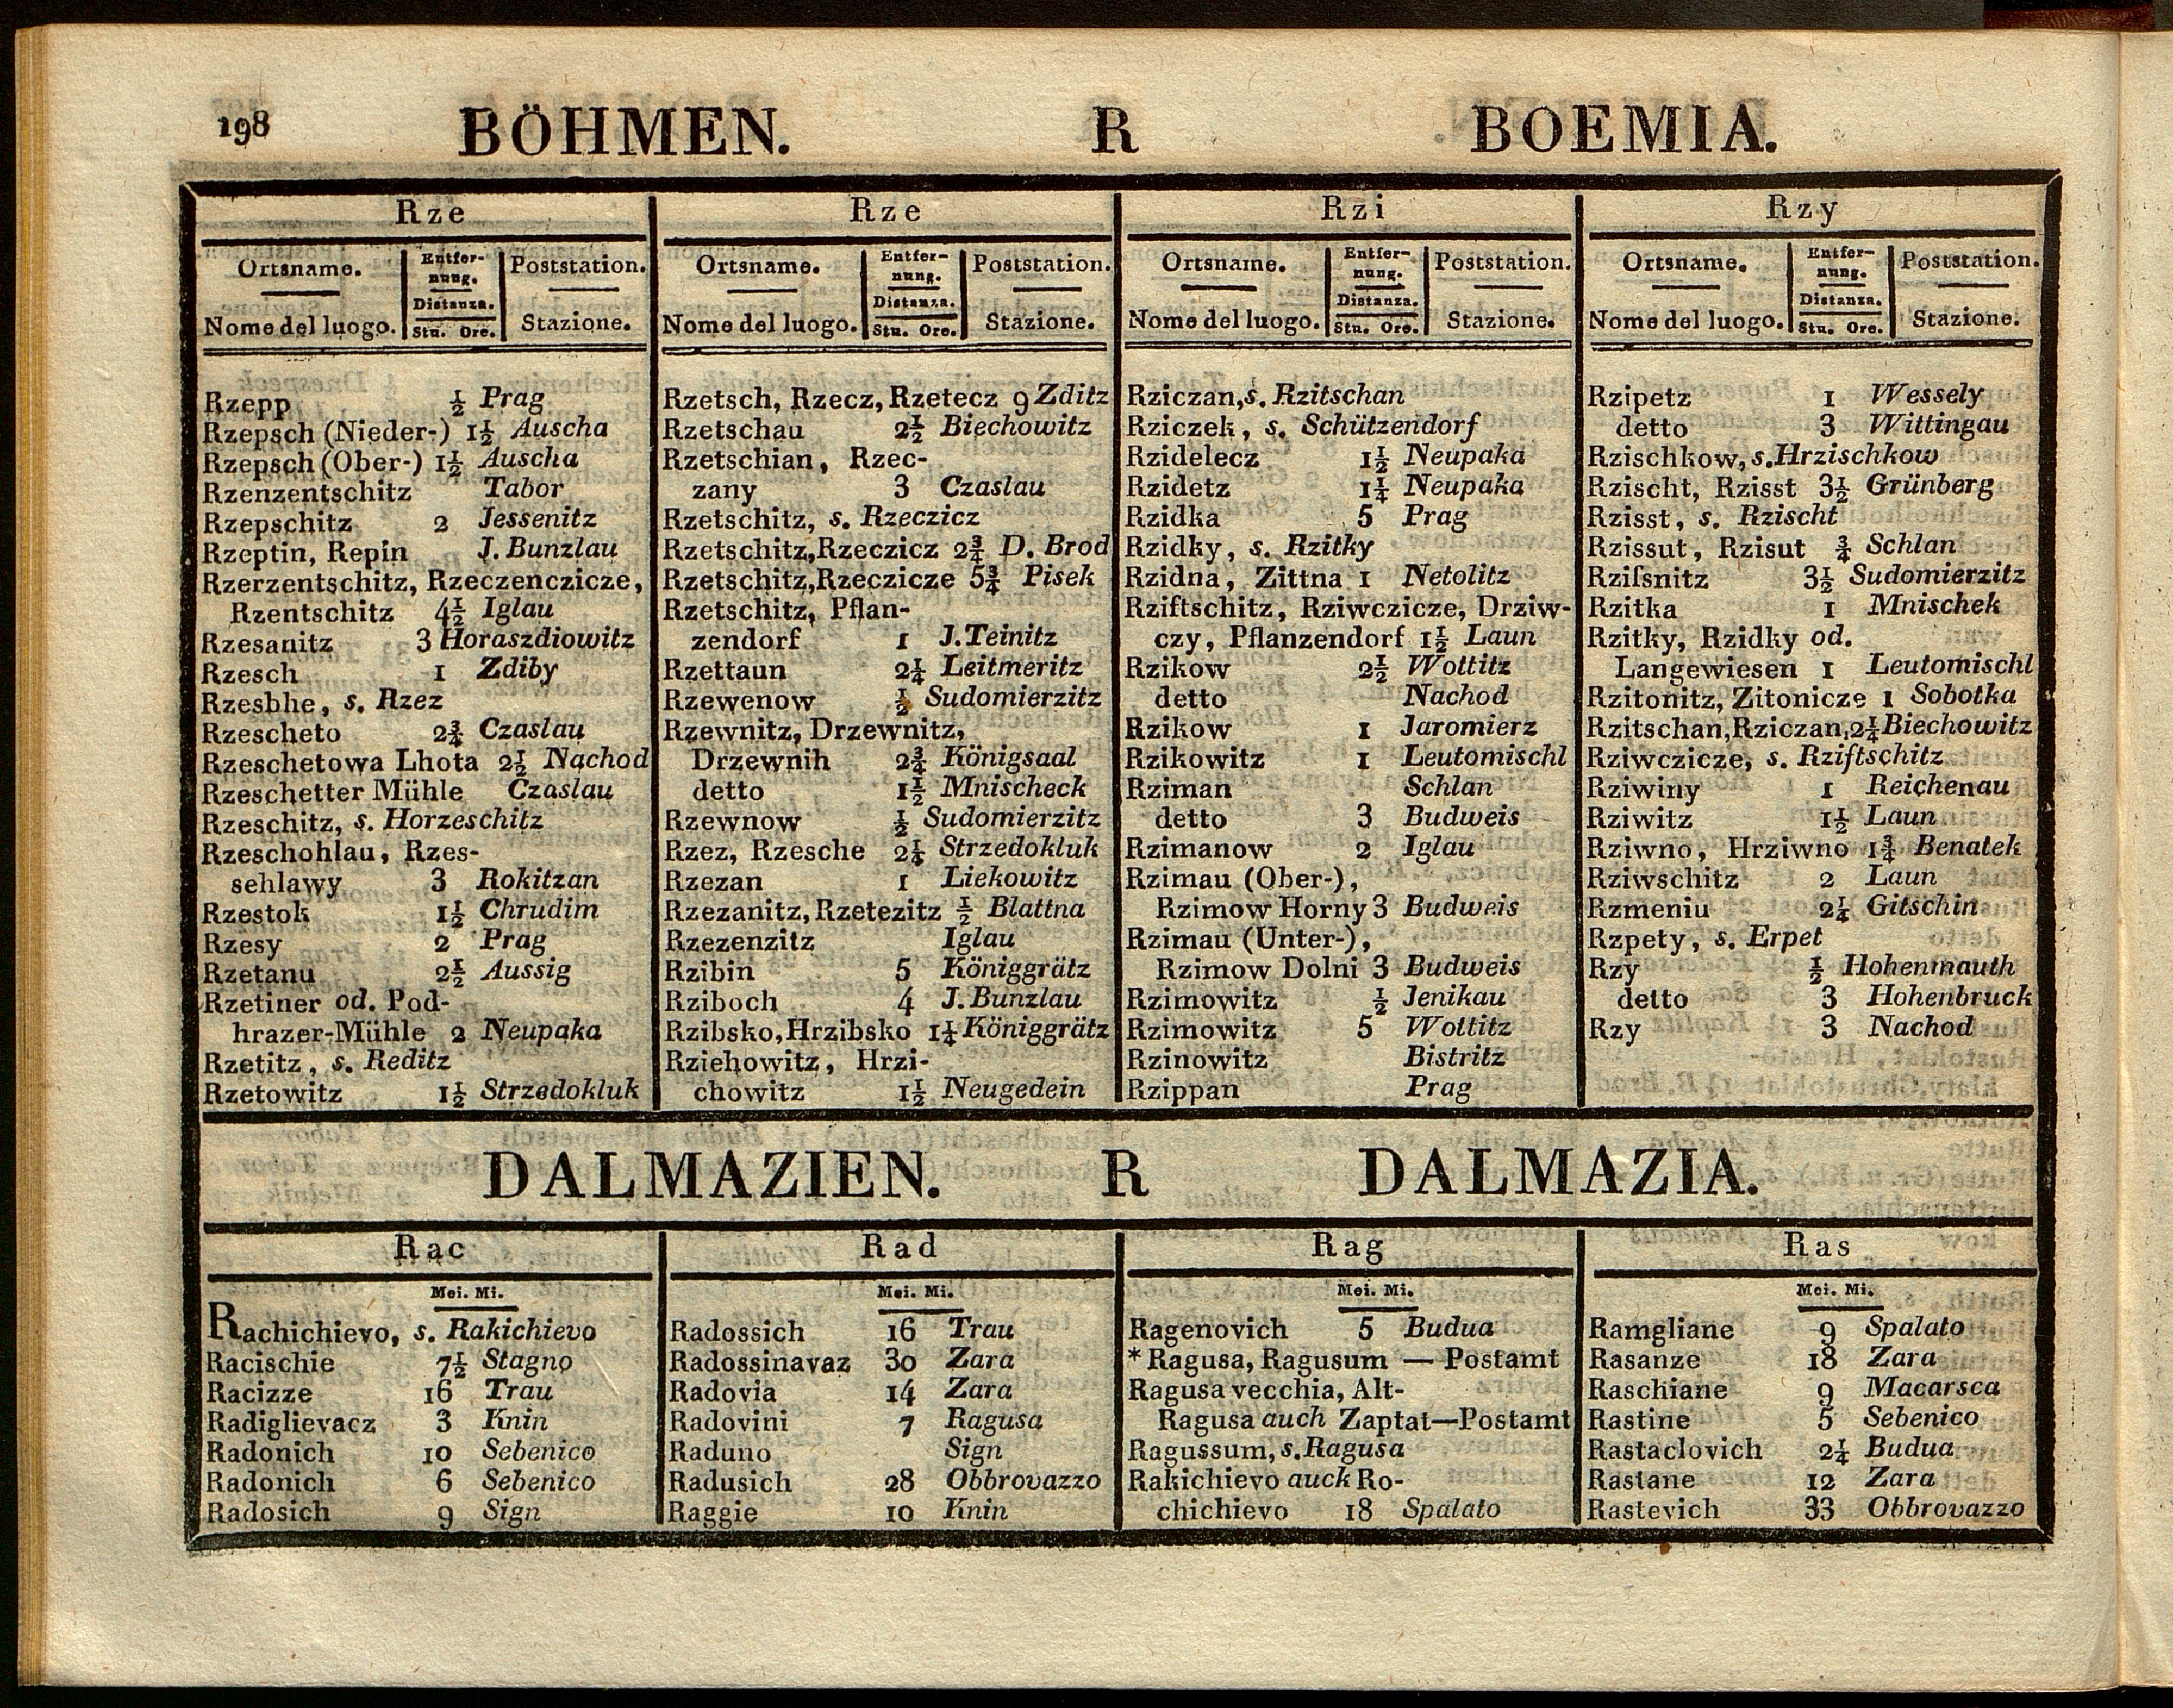 198 BÖHMEN. R BOEMIA.
Rze
Ortsname. Entfer-nung. Poststation.
Distanza.
Nome del luogo. Stu. Ore. Stazione.
Rzepp ½ Prag
Rzepsch (Nieder-) 1½ Auscha
Rzepsch (Ober-) 1½ Auscha
Rzenzentschitz Tabor
Rzepschitz 2 Jessenitz
Rzeptin, Repin J. Bunzlau
Rzerzentschitz, Rzeczenczicze,
Rzentschitz 4½ Iglau
Rzesanitz 3 Horaszdiowitz
Rzesch 1 Zdiby
Rzesbhe, s. Rzez
Rzescheto 2¾ Czaslau
Rzeschetowa Lhota 2½ Nachod
Rzeschetter Mühle Czaslau
Rzeschitz, s. Horzeschitz
Rzeschohlau, Rzes-
sehlawy 3 Rokitzan
Rzestok 1½ Chrudim
Rzesy 2 Prag
Rzetanu 2½ Aussig
Rzetiner od. Pod-
hrazer-Mühle 2 Neupaka
Rzetitz, s. Reditz
Rzetowitz 1½ Strzedokluk
Rze
Ortsname. Entfer-nung. Poststation.
Distanza.
Nome del luogo. Stu. Ore. Stazione.
Rzetsch, Rzecz, Rzetecz 9 Zditz
Rzetschau 2½ Biechowitz
Rzetschian, Rzec-
zany 3 Czaslau
Rzetschitz, s. Rzeczicz
Rzetschitz, Rzeczicz 2¾ D. Brod
Rzetschitz, Rzeczicze 5¾ Pisek
Rzetschitz, Pflan-
zendorf 1 J. Teinitz
Rzettaun 2¼ Leitmeritz
Rzewenow ½ Sudomierzitz
Rzewnitz, Drzewnitz,
Drzewnih 2¾ Königsaal
detto 1½ Mnischeck
Rzewnow ½ Sudomierzitz
Rzez, Rzesche 2¼ Strzedokluk
Rzezan 1 Liekowitz
Rzezanitz, Rzetezitz ½ Blattna
Rzezenzitz Iglau
Rzibin 5 Königgrätz
Rziboch 4 J. Bunzlau
Rzibsko, Hrzibsko 1¼ Königgrätz
Rziehowitz, Hrzi-
chowitz 1½ Neugedein
Rzi
Ortsname. Entfer-nung. Poststation.
Distanza.
Nome del luogo. Stu. Ore. Stazione.
Rziczan, s. Rzitschan
Rziczek, s. Schützendorf
Rzidelecz 1½ Neupaka
Rzidetz 1¼ Neupaka
Rzidka 5 Prag
Rzidky, s. Rzitky
Rzidna, Zittna 1 Netolitz
Rziftschitz, Rziwczicze, Drziw-
czy, Pflanzendorf 1½ Laun
Rzikow 2½ Wottitz
detto Nachod
Rzikow 1 Jaromierz
Rzikowitz 1 Leutomischl
Rziman Schlan
detto 3 Budweis
Rzimanow 2 Iglau
Rzimau (Ober-),
Rzimow Horny 3 Budweis
Rzimau (Unter-),
Rzimow Dolni 3 Budweis
Rzimowitz ½ Jenikau
Rzimowitz 5 Wottitz
Rzinowitz Bistritz
Rzippan Prag
Rzy
Ortsname. Entfer-nung. Poststation.
Distanza.
Nome del luogo. Stu. Ore. Stazione.
Rzipetz 1 Wessely
detto 3 Wittingau
Rzischkow, s. Hrzischkow
Rzischt, Rzisst 3½ Grünberg
Rzisst, s. Rzischt
Rzissut, Rzisut ¾ Schlan
Rziſsnitz 3½ Sudomierzitz
Rzitka 1 Mnischek
Rzitky, Rzidky od.
Langewiesen 1 Leutomischl
Rzitonitz, Zitonicze 1 Sobotka
Rzitschan, Rziczan, 2¼ Biechowitz
Rziwczicze, s. Rziftschitz
Rziwiny 1 Reichenau
Rziwitz 1½ Laun
Rziwno, Hrziwno 1¾ Benatek
Rziwschitz 2 Laun
Rzmeniu 2¼ Gitschin
Rzpety, s. Erpet
Rzy ½ Hohenmauth
detto 3 Hohenbruck
Rzy 3 Nachod
DALMAZIEN. R DALMAZIA.
Rac
Mei. Mi.
Rachichievo, s. Rakichievo
Racischie 7½ Stagno
Racizze 16 Trau
Radiglievacz 3 Knin
Radonich 10 Sebenico
Radonich 6 Sebenico
Radosich 9 Sign
Rad
Mei. Mi.
Radossich 16 Trau
Radossinavaz 30 Zara
Radovia 14 Zara
Radovini 7 Ragusa
Raduno Sign
Radusich 28 Obbrovazzo
Raggie 10 Knin
Rag
Mei. Mi.
Ragenovich 5 Budua
* Ragusa, Ragusum — Postamt
Ragusa vecchia, Alt-
Ragusa auch Zaptat—Postamt
Ragussum, s. Ragusa
Rakichievo auck Ro-
chichievo 18 Spalato
Ras
Mei. Mi.
Ramgliane 9 Spalato
Rasanze 18 Zara
Raschiane 9 Macarsca
Rastine 5 Sebenico
Rastaclovich 2¼ Budua
Rastane 12 Zara
Rastevich 33 Obbrovazzo